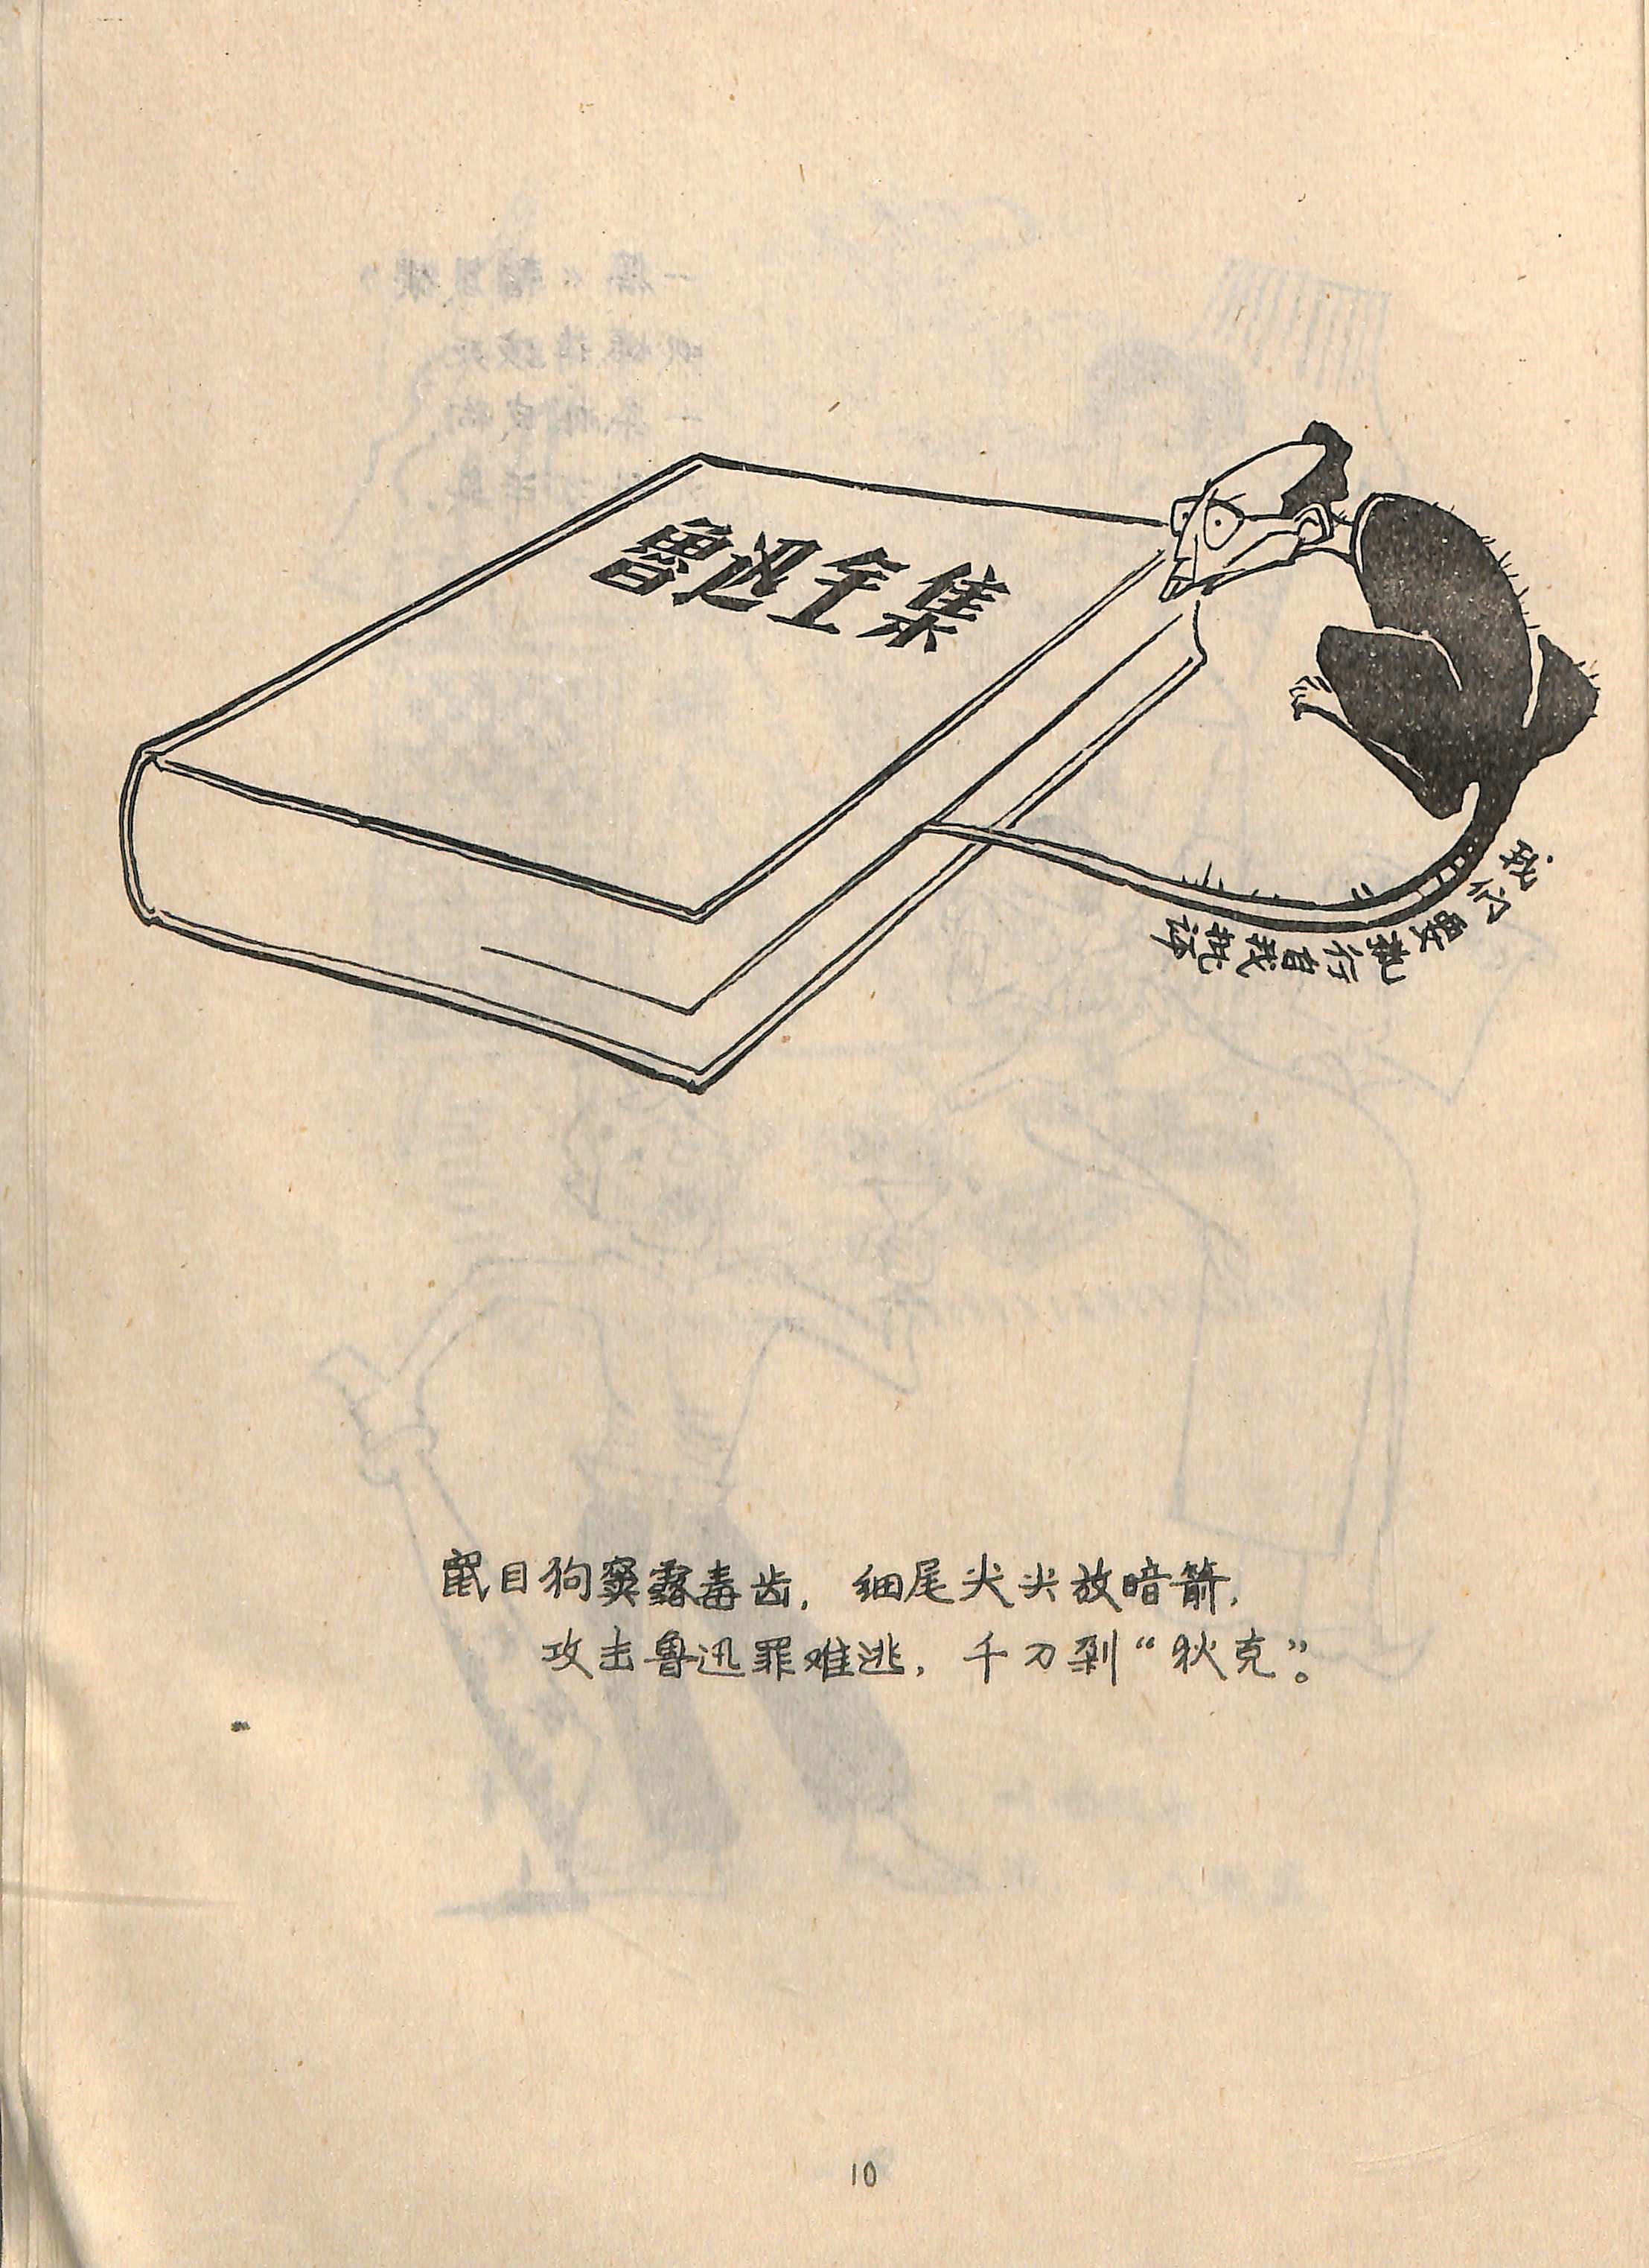 鲁迅全集
我们要執行自我批评
鼠目狗窦露毒齿，细尾尖尖放暗箭，
攻击鲁迅罪难逃，千刀剁“狄克”。
10